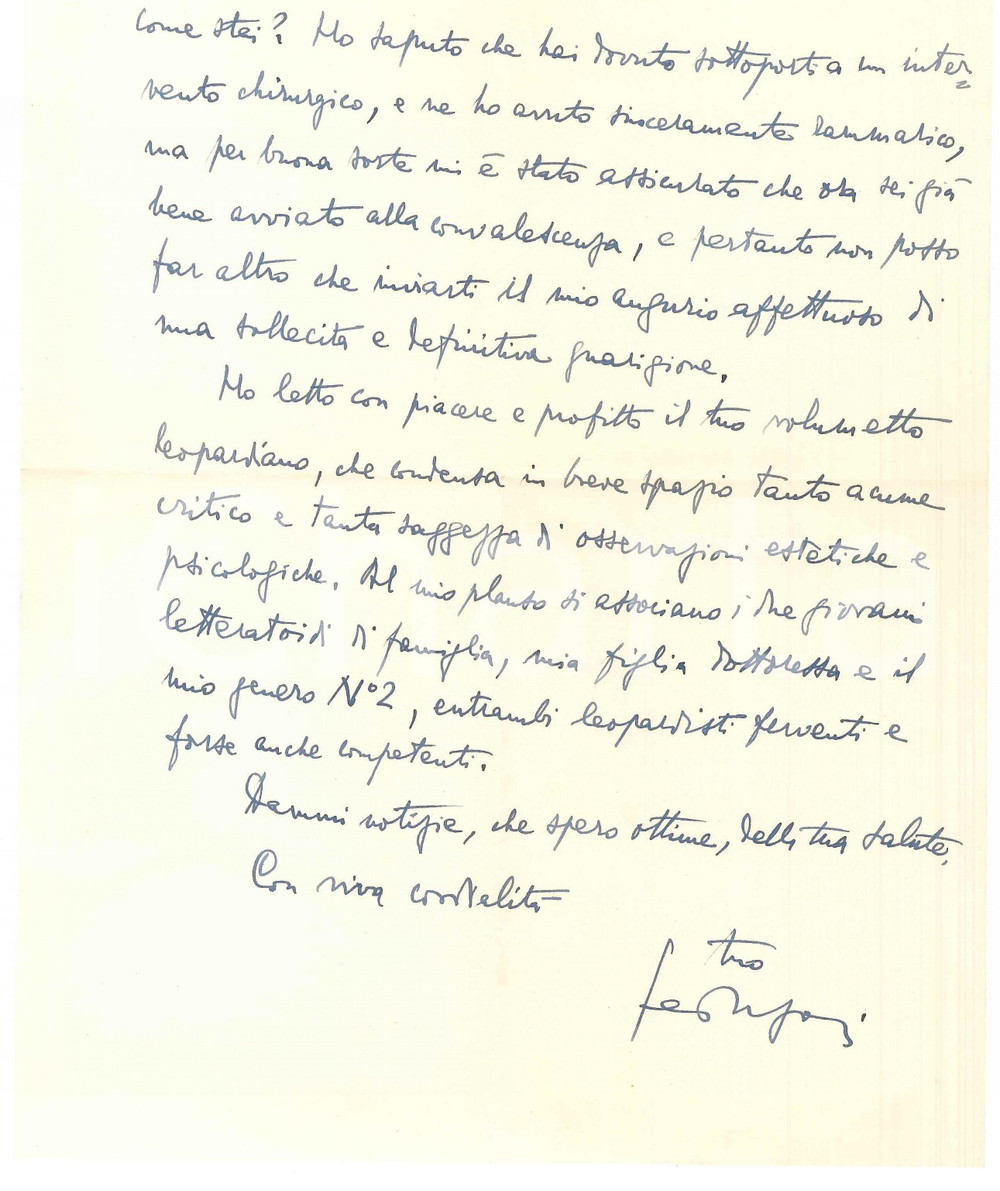 come stai? Ho saputo che hai dovuto sottoporti a un inter=
vento chirurgico, e ne ho avuto sinceramente rammarico,
ma per buona sorte mi è stato assicurato che ora sei già
bene avviato alla convalescenza, e pertanto non posso
far altro che inviarti il mio augurio affettuoso di
una sollecita e definitiva guarigione.
Ho letto con piacere e profitto il tuo volumetto
leopardiano, che condensa in breve spazio tanto acume
critico e tanta saggezza di osservazioni estetiche e
psicologiche. Al mio plauso si associano i due giovani
letteratoidi di famiglia, mia figlia dottoressa e il
mio genero N°2, entrambi leopardisti ferventi e
forse anche competenti.
Dammi notizie, che spero ottime, della tua salute.
Con viva cordialità
tuo